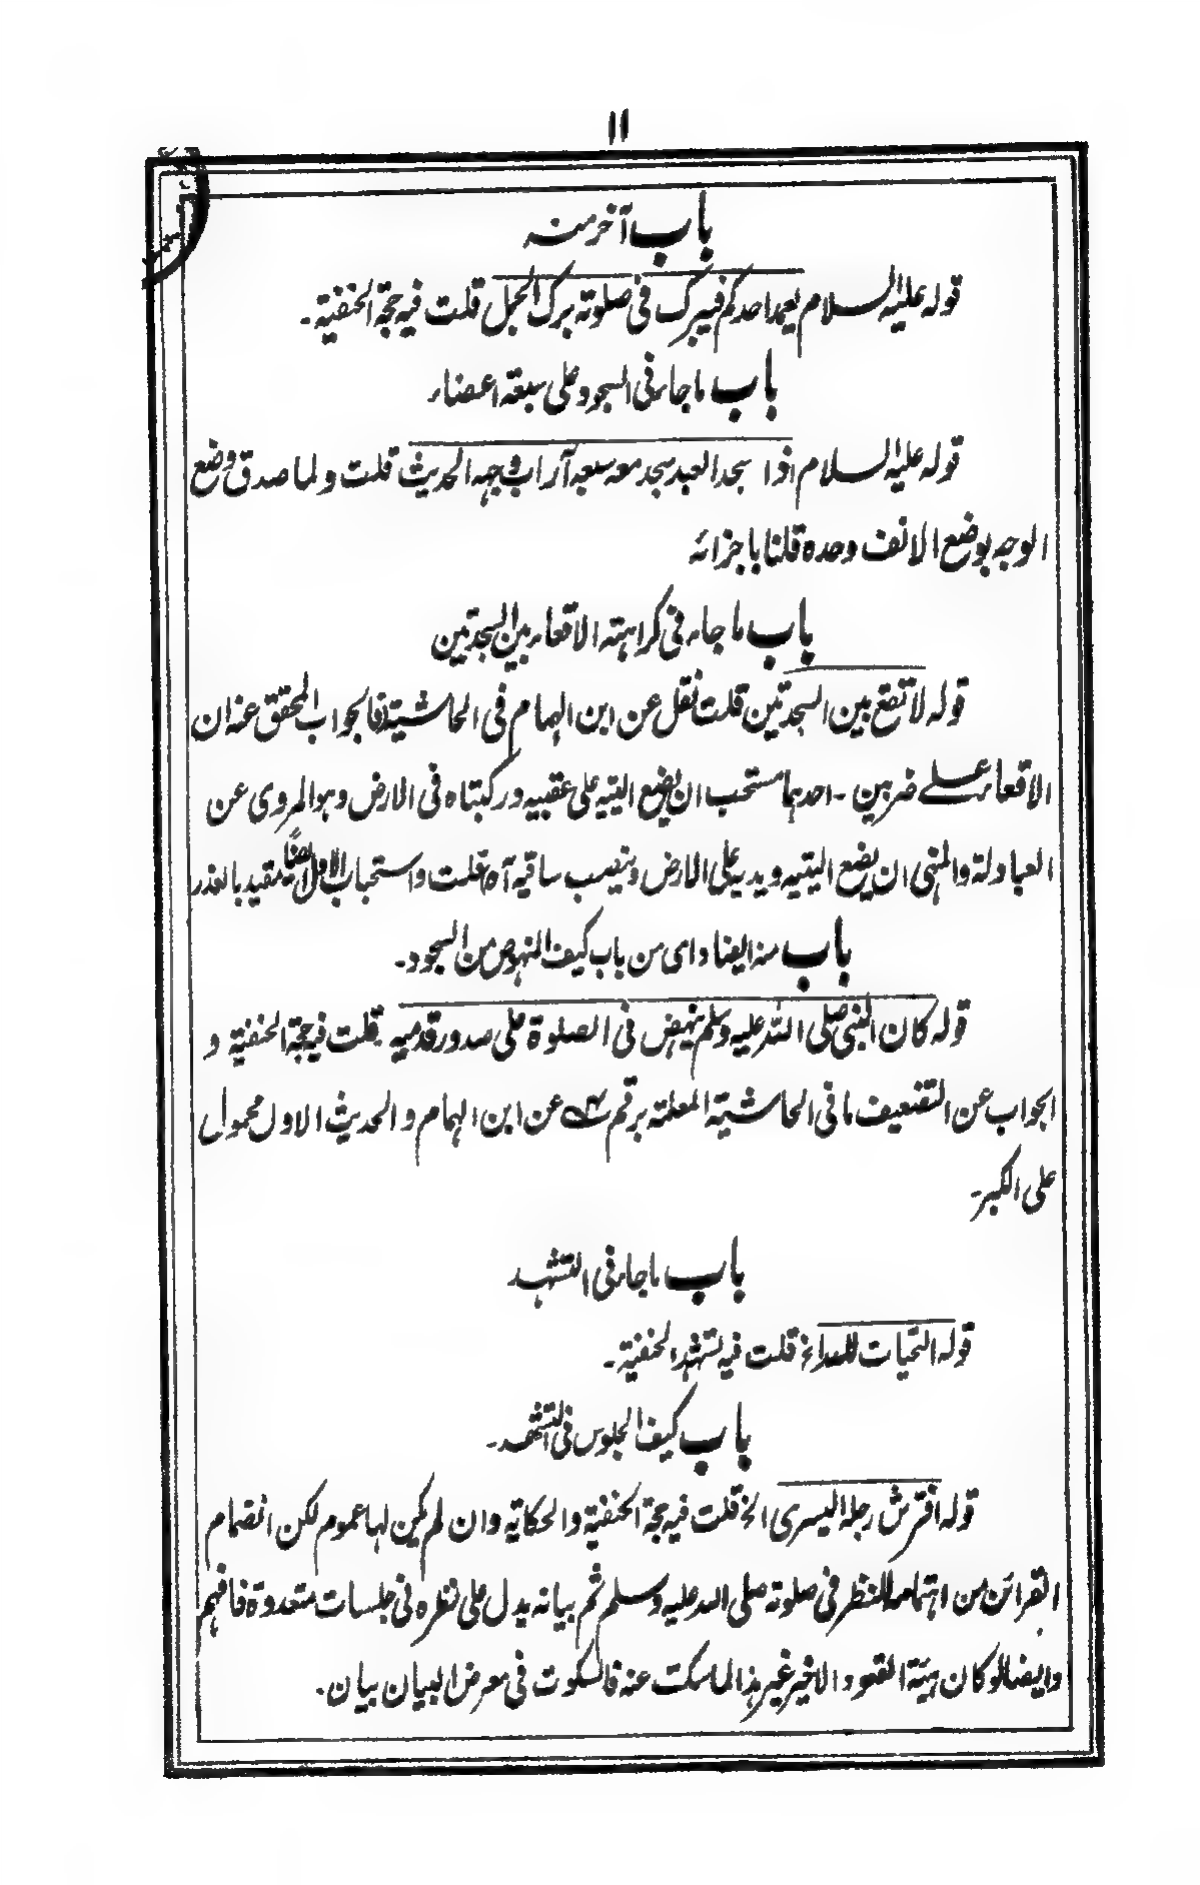 ۱۱
باب آخر منه
قوله عليه السلام يعمد احدكم فيبرك فى صلوته برك الجمل قلت فيه حجة الحنفية ۔
باب ما جاء فى السجود على سبعة اعضاء
قوله عليه السلام اذا سجد العبد سجد معه سبعة آراب وجهه الحديث قلت ولما صدق وضع
الوجه بوضع الانف وحده قلنا باجزائه
باب ما جاء فى كراهته الاقعاء بين السجدتين
قوله لا تقع بين السجدتين قلت نقل عن ابن الهمام فى الحاشية فالجواب المحقق عنه ان
الاقعاء على ضربين ۔ احدهما مستحب ان يضع اليتيه على عقبيه وركبتاه فى الارض وهو المروى عن
العبادلة والمنهى ان يضع اليتيه ويديه على الارض وينصب ساقيه آه قلت واستحباب الاول ايضا مقيد بالعذر
باب منه ايضا و اى من باب كيف النهوض من السجود۔
قوله كان النبى صلى الله عليه وسلم ينهض فى الصلوة على صدور قدميه قلت فيه حجة الحنفية و
الجواب عن التضعيف ما فى الحاشية المعلمة برقم عن ابن الهمام والحديث الاول محمول
على الكبر۔
باب ما جاء فى التشهد
قوله التحيات لله اه قلت فيه تشهد الحنفية ۔
باب كيف الجلوس فى التشهد ۔
قوله افترش رجله اليسرى الخ قلت فيه حجة الحنفية والحكاية وان لم يكن لها عموم لكن انضمام
القرائن من اهتمامه للنظر فى صلوته صلى الله عليه وسلم ثم بيانه يدل على نظره فى جلسات متعددة فافهم
وايضا لو كان هيئة القعود الاخير غير هذا لما سكت عنه فالسكوت فى معرض البيان بيان ۔